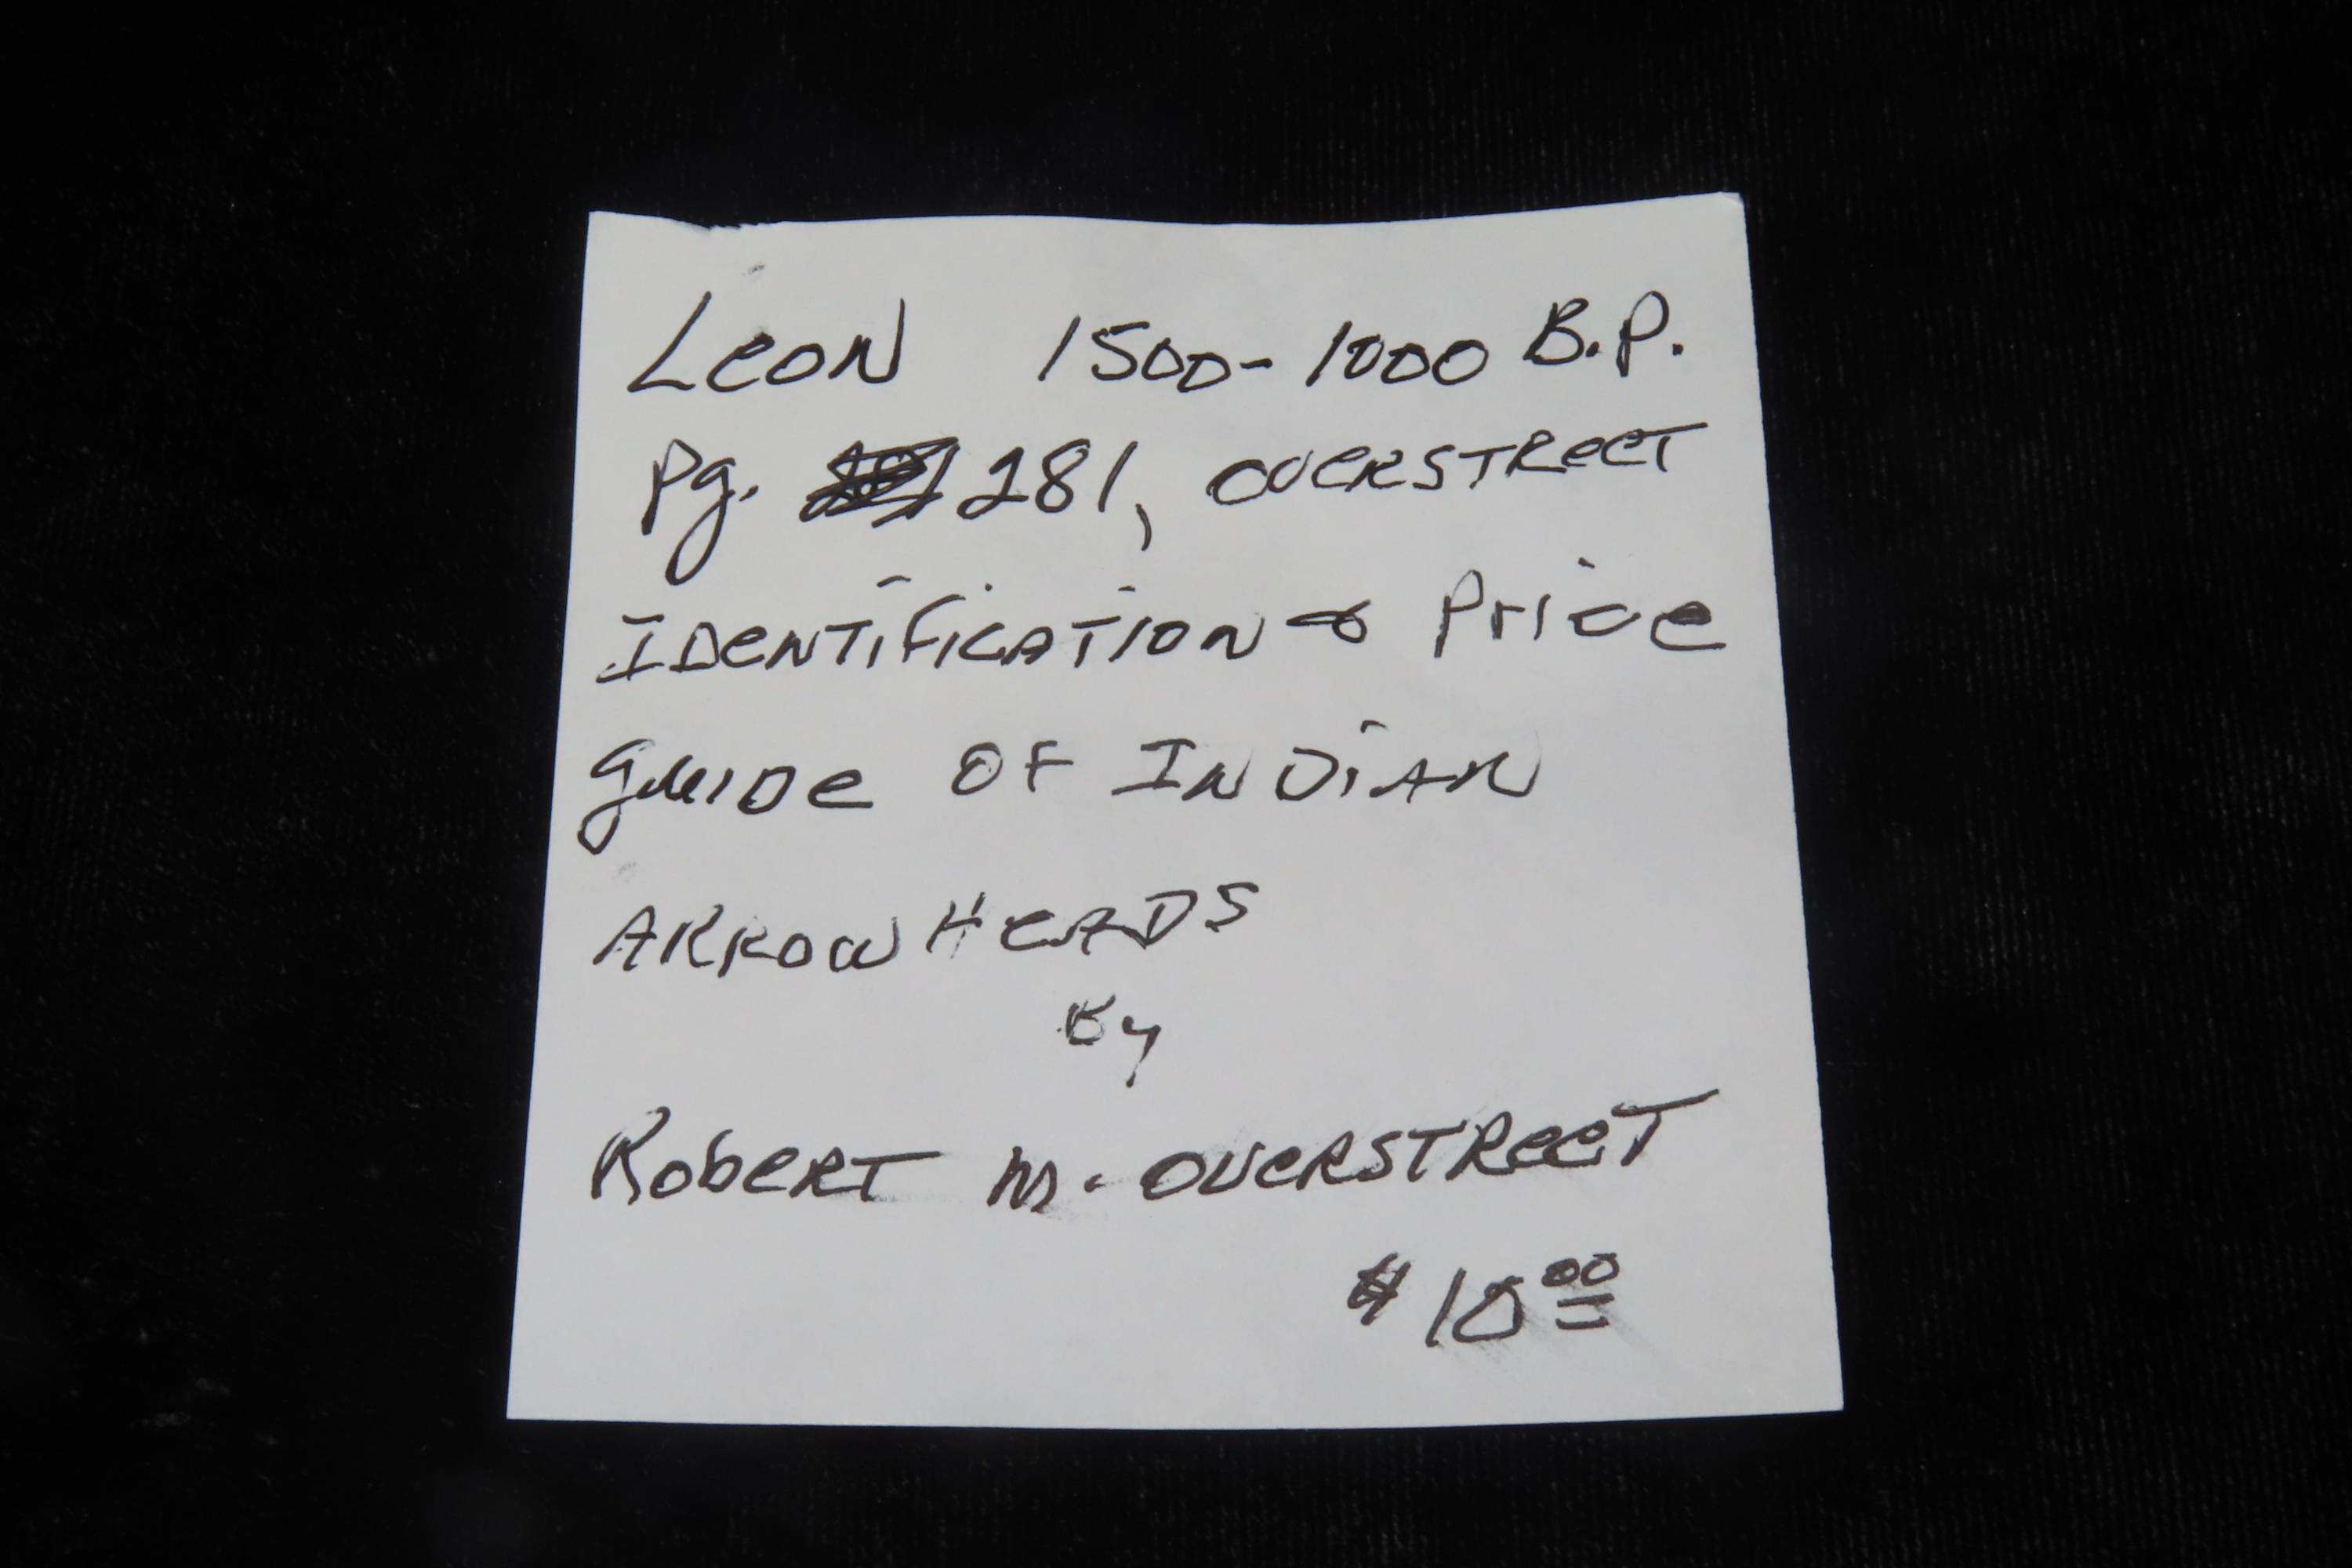 Leon 1500-1000 B.P.
Pg. 281, Overstreet
Identification & Price
Guide of Indian
Arrowheads
By
Robert M. Overstreet
$10.00